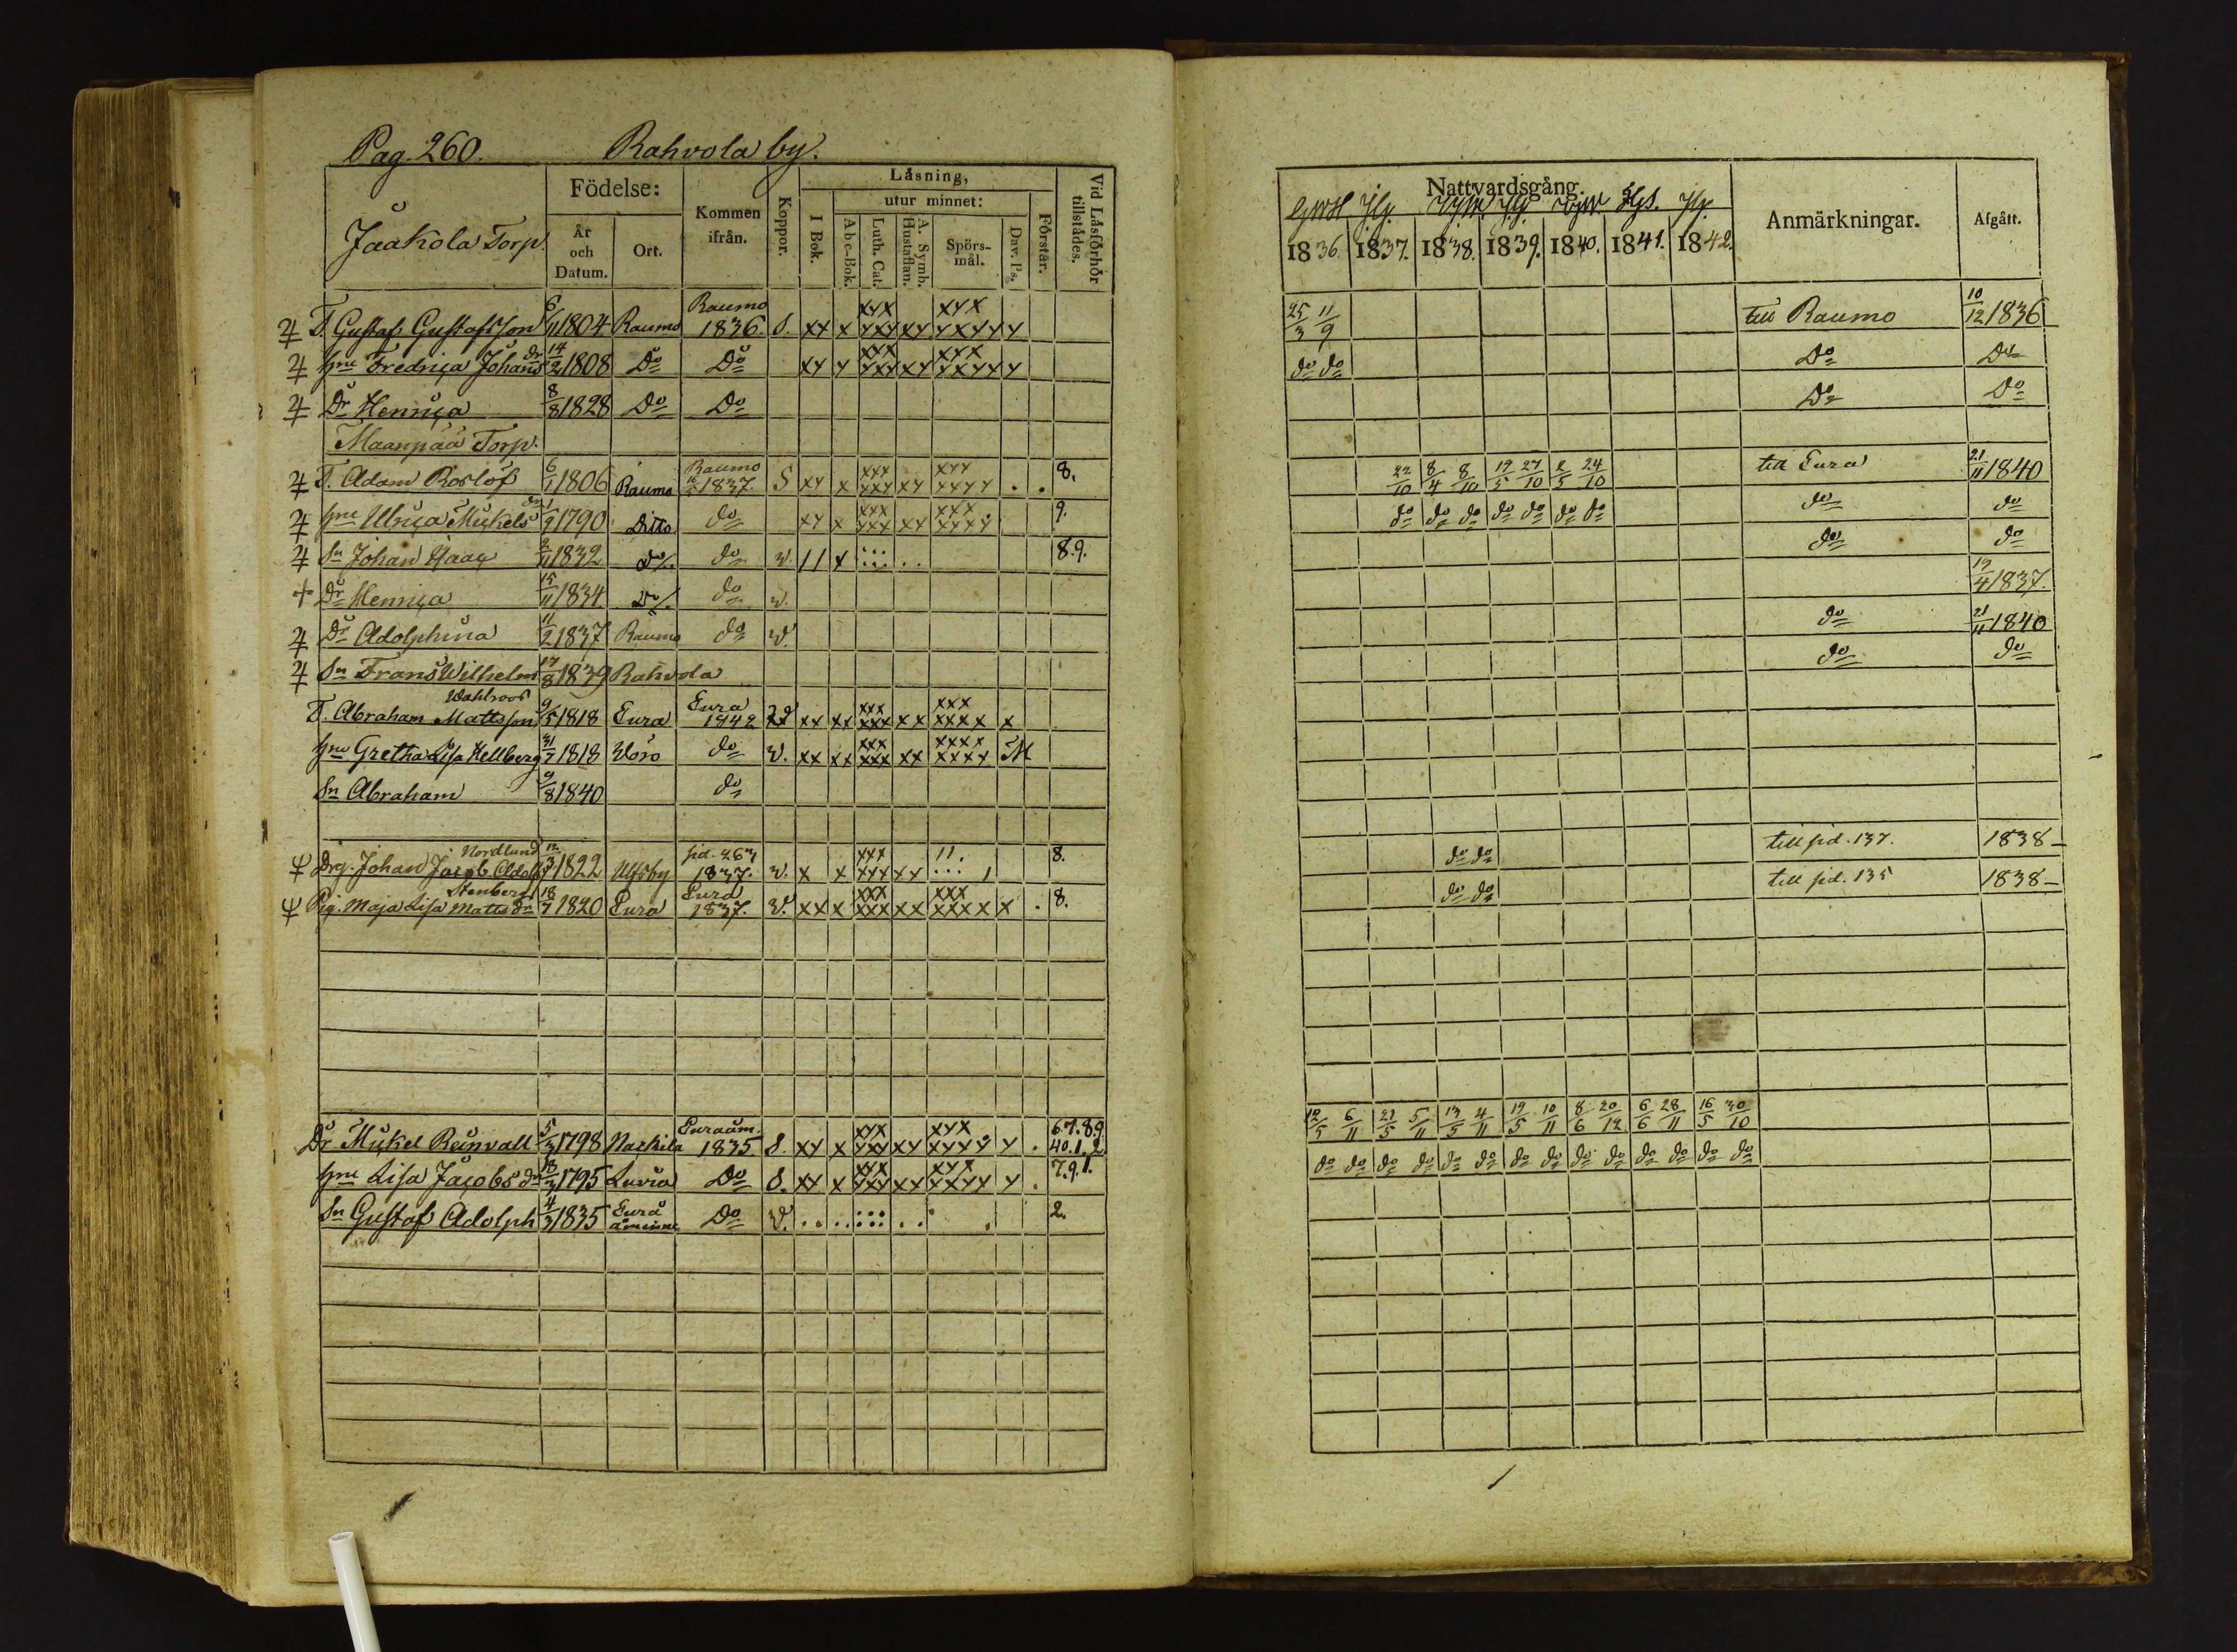 Pag. 260. Rahvola by.
Jaakola Torp.
Födelse: År och Datum. Ort. Kommen ifrån. Koppor. Låsning, I Bok. utur minnet: Abc-Bok. Luth. Cat. A. Symb. Hustaflan. Spörsmål. Dav. Ps. Förstår. Vid Låsförhör tillstådes.
Nattvardsgång. Anmärkningar. Afgått.
1836. 1837. 1838. 1839. 1840. 1841. 1842.
T. Gustaf Gustafsson 6/11 1804 Raumo Raumo 1836. S. xx x xxx xxx xx xxx xxxx x 25/3 11/9 till Raumo 10/12 1836
Hru Fredrica Johans dr 14/2 1808 Do Do xx x xxx xxx xx xxx xxxx x do do Do Do
Dr Henrica 8/8 1828 Do Do Do Do
Maanpää Torp.
T. Adam Roslöf 6/1 1806 Raumo Raumo 1837. S xx x xxx xxx xx xxx xxxx . . 8. 22/10 8/4 8/10 19/5 27/10 2/5 24/10 till Eura 21/11 1840
Hru Ulrica Mickels dr 1790 Ditto do xx x xxx xxx xx xxx xxxx 9. do do do do do do do do do
Sn Johan Isaac 2/11 1832 do do v. 11 x 8.9. do do
+ Dr Henrica 15/11 1834 Do do v. 19/4 1837.
Dr Adolphina 11/2 1837 Raumo do v. do 21/11 1840
Sn Frans Wilhelm 17/8 1839 Rahvola do do
Wahlroos
T. Abraham Mattsson 9/5 1818 Eura Eura 1842 v xx xx xxx xxx xx xxx xxxx x
Hru Gretha Lisa Hellberg 31/7 1818 Wörö do v. xx xx xxx xxx xx xxxx xxxx
Sn Abraham 9/8 1840 do
Nordlund
Drg. Johan Jacob Adolf 12/3 1822 Ulfsby sid. 263 1837. v. x x xxx xxx xx 8. do do till sid. 137. 1838
Stenberg
Pig. Maja Lisa Matts dr 18/7 1820 Eura Eura 1837. v. xx x xxx xxx xx xxx xxxx x . 8. do do till sid. 135 1838
Dr Mickel Reinvall 5/3 1798 Nackila Euraåm. 1835 S. xx x xxx xxx xx xxx xxxx x . 6.7.8.9 40.1.2. 12/5 6/11 21/5 5/11 13/5 4/11 19/5 10/11 8/6 20/12 6/6 28/11 16/5 30/10
Hru Lisa Jacobs dr 13/3 1795 Luvia Do S. xx x xxx xxx xx xxx xxxx x . 7.9.1. do do do do do do do do do do do do do do
Sn Gustaf Adolph 4/3 1835 Eura åminne Do v. 2.